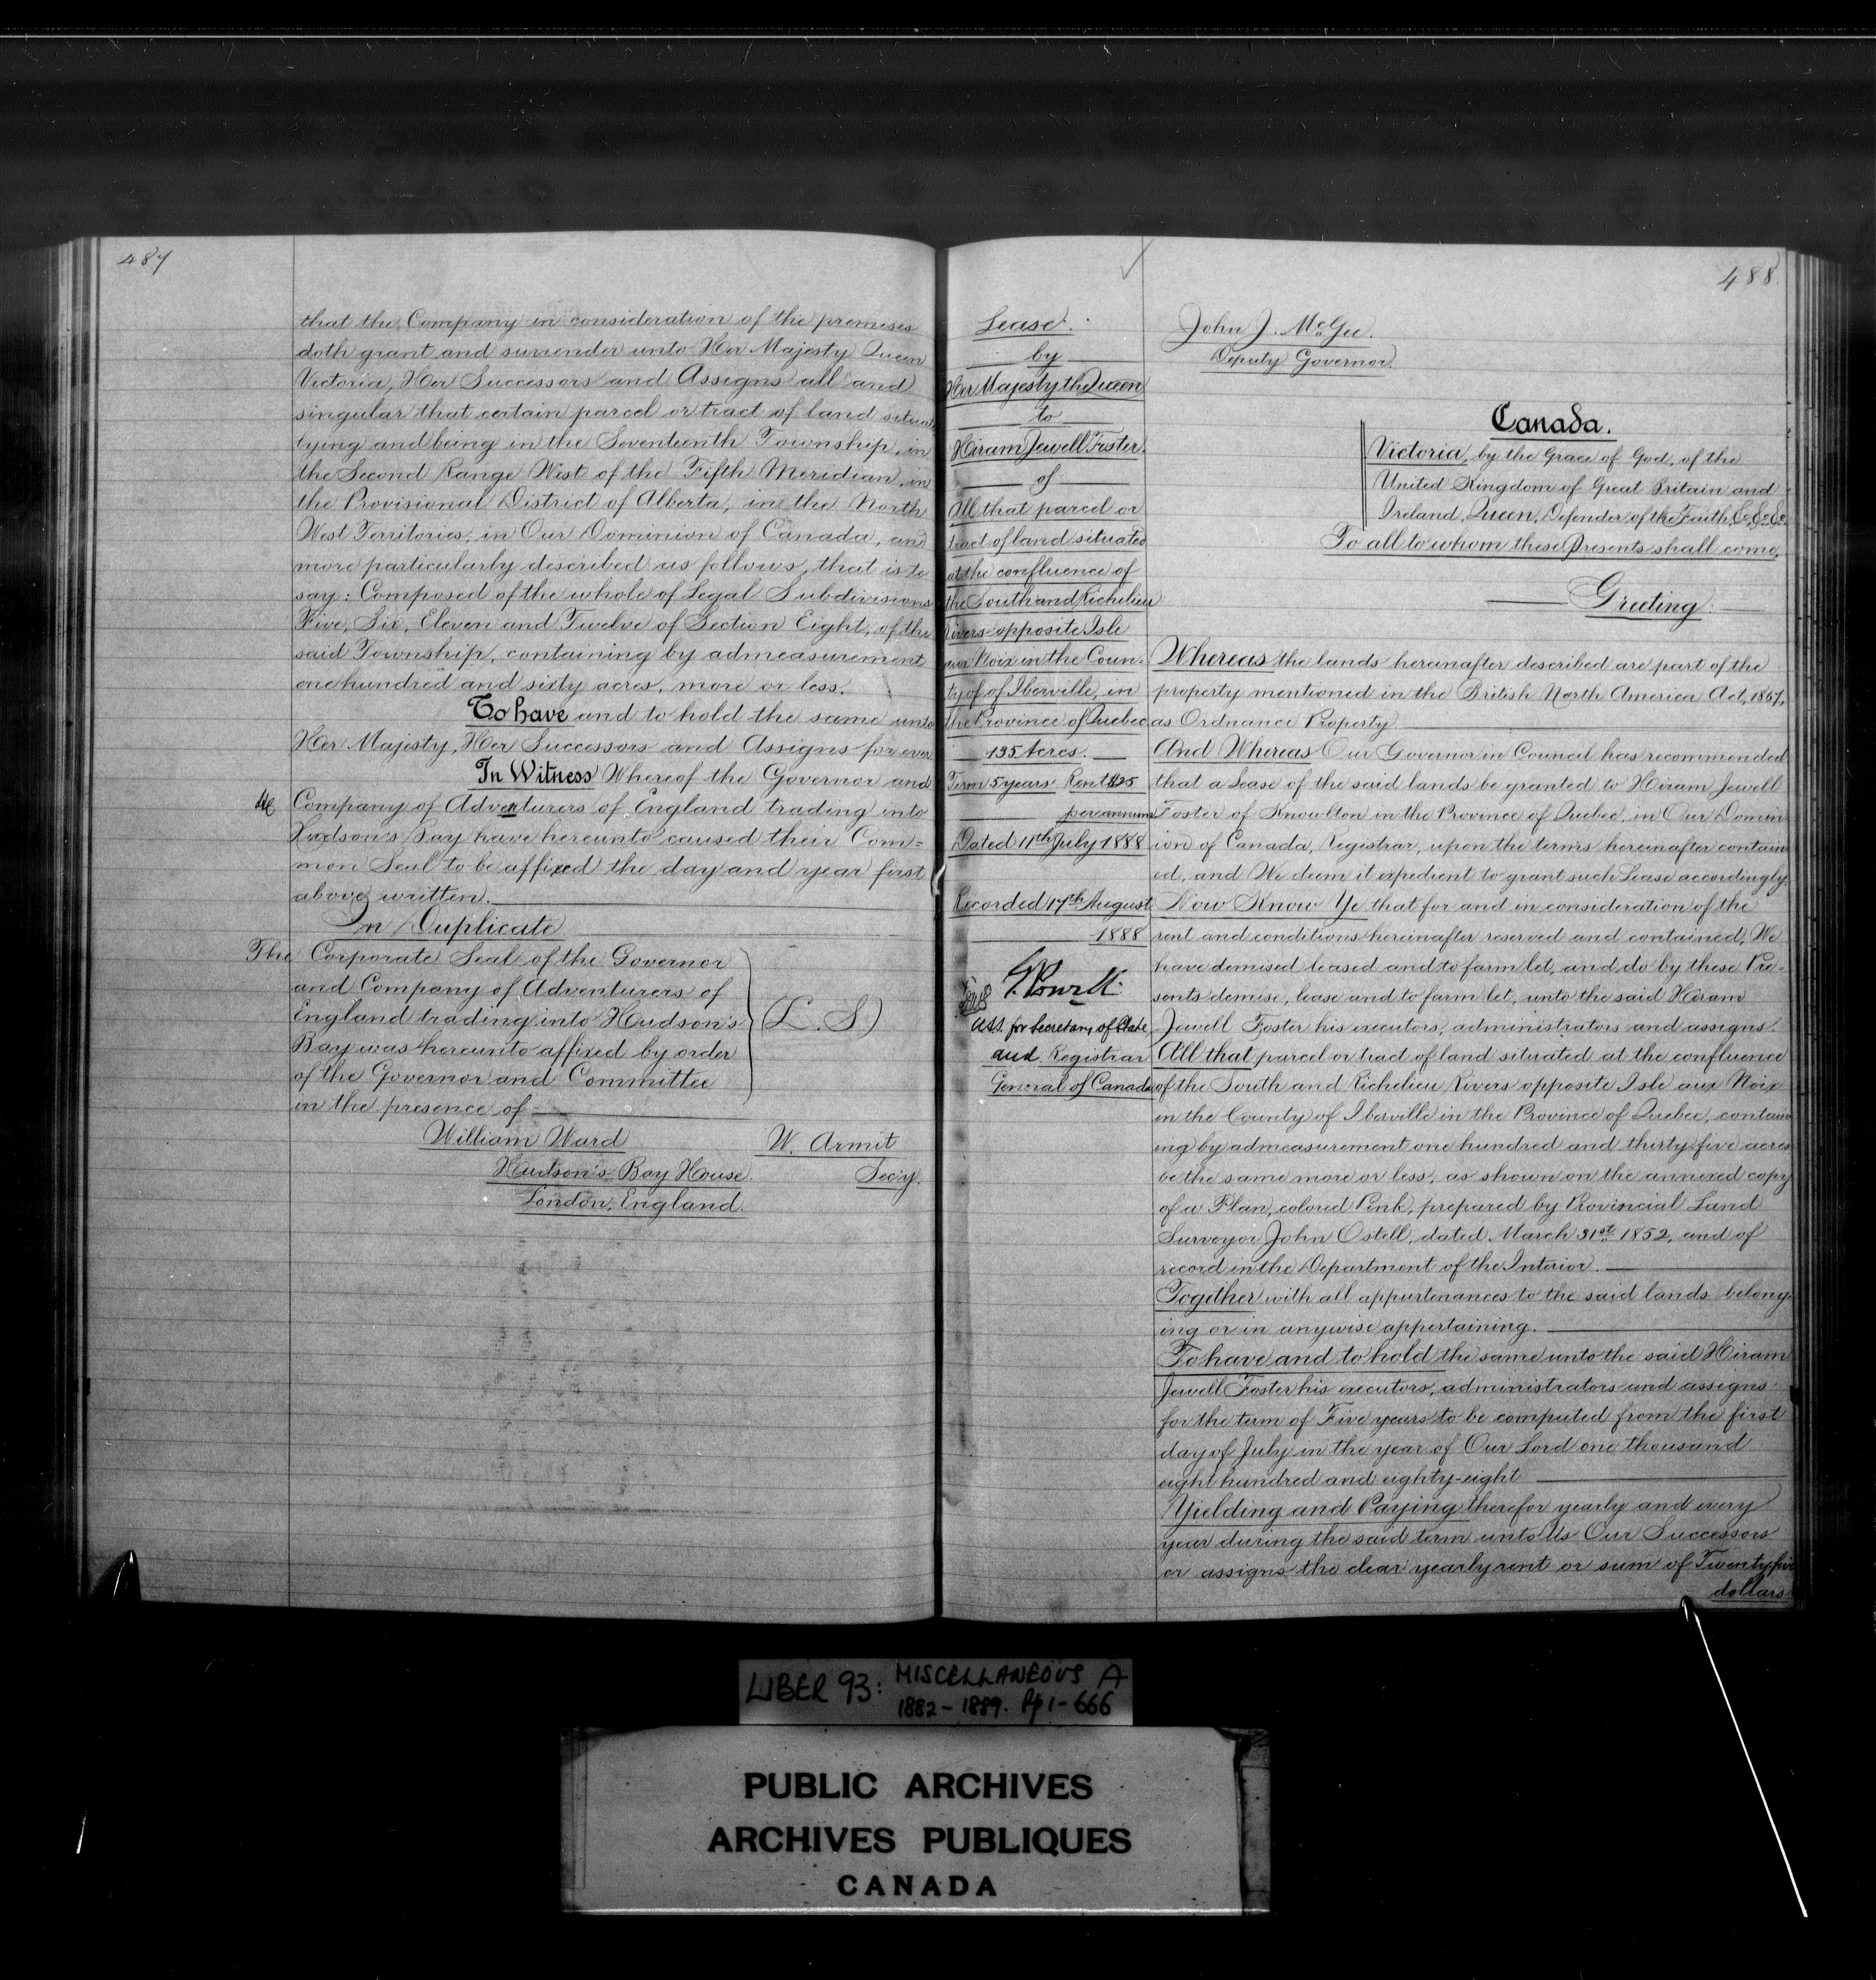 487
that the Company in consideration of the premises
doth grant and surrender unto Her Majesty Queen
Victoria, Her Successors and Assigns all and
singular that certain parcel or tract of land situate
lying and being in the Seventeenth Township, in
the Second Range West of the Fifth Meridian, in
the Provisional District of Alberta, in the North
West Territories, in Our Dominion of Canada, and
more particularly described as follows, that is to
say: Composed of the whole of Legal Subdivisions
Five, Six, Eleven and Twelve of Section Eight, of the
said Township, containing by admeasurement
one hundred and sixty acres, more or less.
To have and to hold the same unto
Her Majesty, Her Successors and Assigns for ever
In Witness Whereof the Governor and
Company of Adventurers of England trading into
Hudson's Bay have hereunto caused their Com=
mon Seal to be affixed the day and year first
above written.
In Duplicate
The Corporate Seal of the Governor
and Company of Adventurers of
England trading into Hudson's
Bay was hereunto affixed by order
of the Governor and Committee
in the presence of
(L. S)
William Ward
Hudson's Bay House
London, England.
W. Armit
Sec'y.
488.
Lease.
by
Her Majesty the Queen
to
Hiram Jewell Foster.
of
All that parcel or
tract of land situated
at the confluence of
the South and Richelieu
Rivers opposite Isle
aux Noix in the Coun-
ty of of Iberville, in
the Province of Quebec
135 Acres.
Term 5 years Rent $25
per annum
Dated 11th July 1888
Recorded 17th August
1888
Powell
for Secretary of State
and Registrar
General of Canada
John J. McGee.
Deputy Governor.
Canada.
Victoria, by the Grace of God, of the
United Kingdom of Great Britain and
Ireland, Queen, Defender of the Faith, &c &c &c
To all to whom these Presents shall come,
Greeting.
Whereas the lands hereinafter described are part of the
property mentioned in the British North America Act, 1867,
as Ordnance Property
And Whereas Our Governor in Council has recommended
that a Lease of the said lands be granted to Hiram Jewell
Foster of Knowlton in the Province of Quebec, in Our Domin
ion of Canada, Registrar, upon the terms hereinafter contain
ed, and We deem it expedient to grant such Lease accordingly.
Now Know Ye that for and in consideration of the
rent and conditions hereinafter reserved and contained, We
have demised leased and to farm let, and do by these Pre-
sents demise, lease and to farm let, unto the said Hiram
Jewell Foster his executors, administrators and assigns.
All that parcel or tract of land situated at the confluence
of the South and Richelieu Rivers opposite Isle aux Noix
in the County of Iberville in the Province of Quebec, contain
ing by admeasurement one hundred and thirty five acres
be the same more or less, as shown on the annexed copy
of a Plan, colored Pink, prepared by Provincial Land
Surveyor John Ostell, dated March 31st 1852, and of
record in the Department of the Interior.
Together with all appurtenances to the said lands belong-
ing or in anywise appertaining.
To have and to hold the same unto the said Hiram
Jewell Foster his executors, administrators and assigns
for the term of Five years to be computed from the first
day of July in the year of Our Lord one thousand
eight hundred and eighty-eight
Yielding and Paying therefor yearly and every
year during the said term unto Us Our Successors
or assigns the clear yearly rent or sum of Twenty five
dollars
LIBER 93: MISCELLANEOUS A
1882-1889. Pp 1-666
PUBLIC ARCHIVES
ARCHIVES PUBLIQUES
CANADA